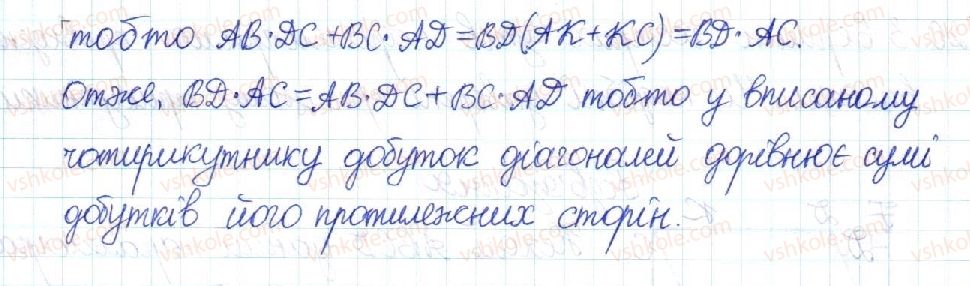 тобто AB·DC+BC·AD=BD(AK+KC)=BD·AC.
Отже, BD·AC=AB·DC+BC·AD тобто у вписаному
чотирикутнику добуток діагоналей дорівнює сумі
добутків його протилежних сторін.